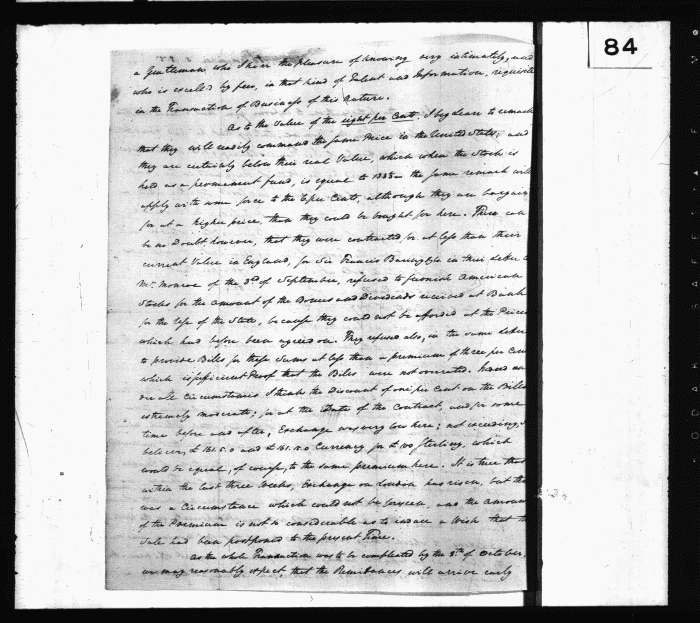 84
a Gentleman who I have the pleasure of knowing very intimately, and
who is excelled by few, in that kind of Talent and Information, requisite
in the Transaction of Business of this nature.
As to the Value of the eight per Cents. I beg leave to remark
that they will readily command the same Price in the United States; and
they are certainly below their real Value, which when the Stock is
held as a permanent fund, is equal to the same remark will
apply with some force to the Cents, although they are
for at a higher price, than they could be bought for here. There can
be no doubt however, that they were contracted for at less than their
current Value in England, for Sir Francis Baring & Co in their Letter
Mr. Monroe of the 3d of September, refused to furnish American
Stocks for the amount of the Bonus and Dividends received at Bank
for the Use of the State, because they could not be afforded at the Prices
which had before been agreed on. They refused also, in the same Letter
to provide Bills for these Sums at less than a premium of three per Cent
which is sufficient Proof that the Bills were not overrated.
all circumstances I think the Discount of one per Cent on the Bills
extremely moderate; for at the Date of the Contract, and for some
time before and after, Exchange was very low here; not exceeding, I
believe, £ 161.5.0 and £ Currency for £ 100 Sterling, which
would be equal, of course, to the same premium here. It is true that
within the last three Weeks, Exchange on London has risen, but this
was a Circumstance which could not be foreseen, and the amount
of the Premium is not so considerable as to induce a Wish that the
Sale had been postponed to the present Time.
As the whole Transaction was to be completed by the of October,
we may reasonably expect, that the Remittances will arrive early
KODAK SAFETY